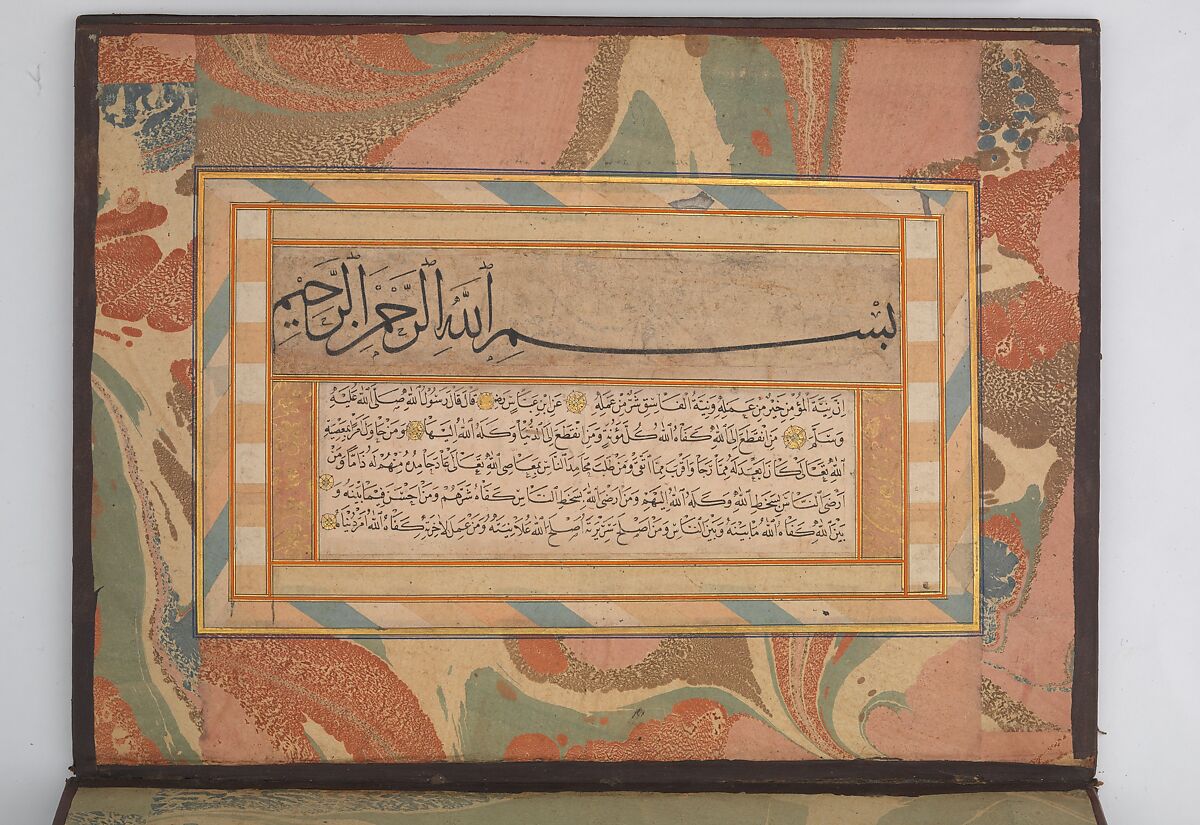 بسم الله الرحمن الرحيم
ان نية المؤمن خير من عمله ونية الفاسق شر من عمله عن ابن عباس رض قال قال رسول الله صلى الله عليه
وسلم من انقطع الى الله كفاه الله كل مؤنة ومن انقطع الى الدنيا وكله الله اليها ومن حاول امرا بمعصية
الله تعالى كان ابعد له مما رجا واقرب مما اتقى ومن طلب محامد الناس بمعاصى الله تعالى عاد حامده منهم له ذاما ومن
ارضى الناس بسخط الله وكله الله اليهم ومن ارضى الله بسخط الناس كفاه شرهم ومن احسن فيما بينه و
بين الله كفاه الله ما بينه وبين الناس ومن اصلح سريرته اصلح الله علانيته ومن عمل لاخرته كفاه الله امر دنياه